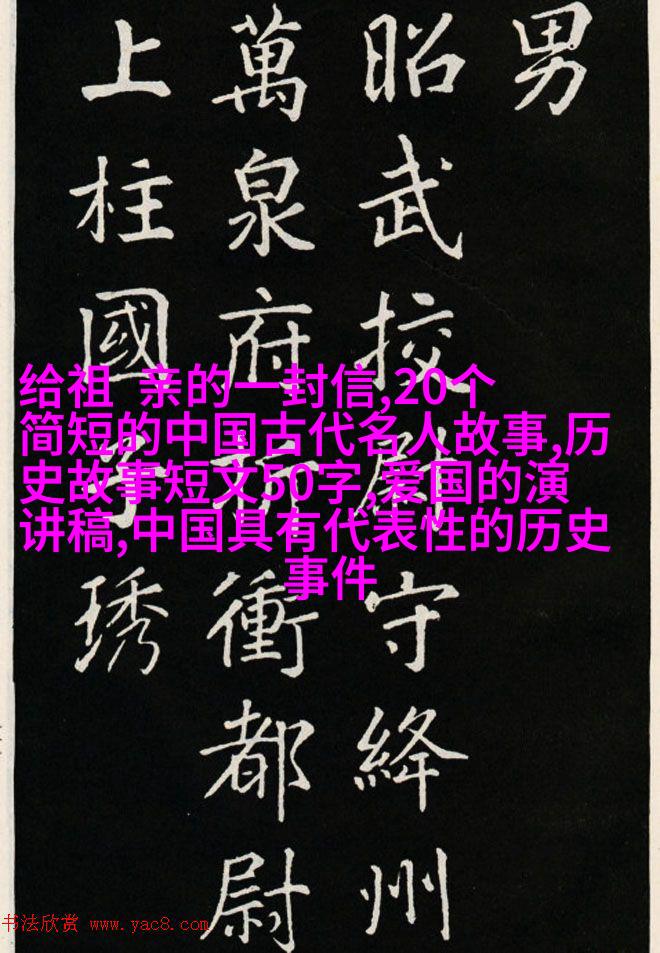 男
昭武挍尉守絳州
萬泉府折衝都尉
上柱國子琇
给祖 亲的一封信,20个
简短的中国古代名人故事,历
史故事短文50字,爱国的演
讲稿,中国具有代表性的历史
事件
书法欣赏 www.yac8.com